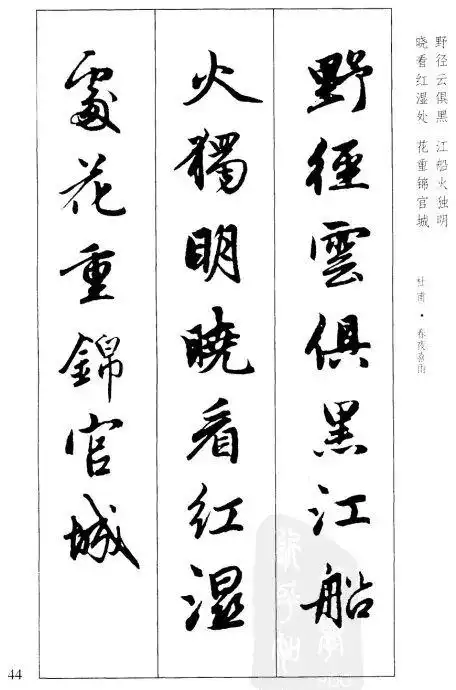 野径云俱黑 江船火独明
晓看红湿处 花重锦官城
杜甫·春夜喜雨
野徑雲俱黑江船
火獨明曉看紅濕
處花重錦官城
44